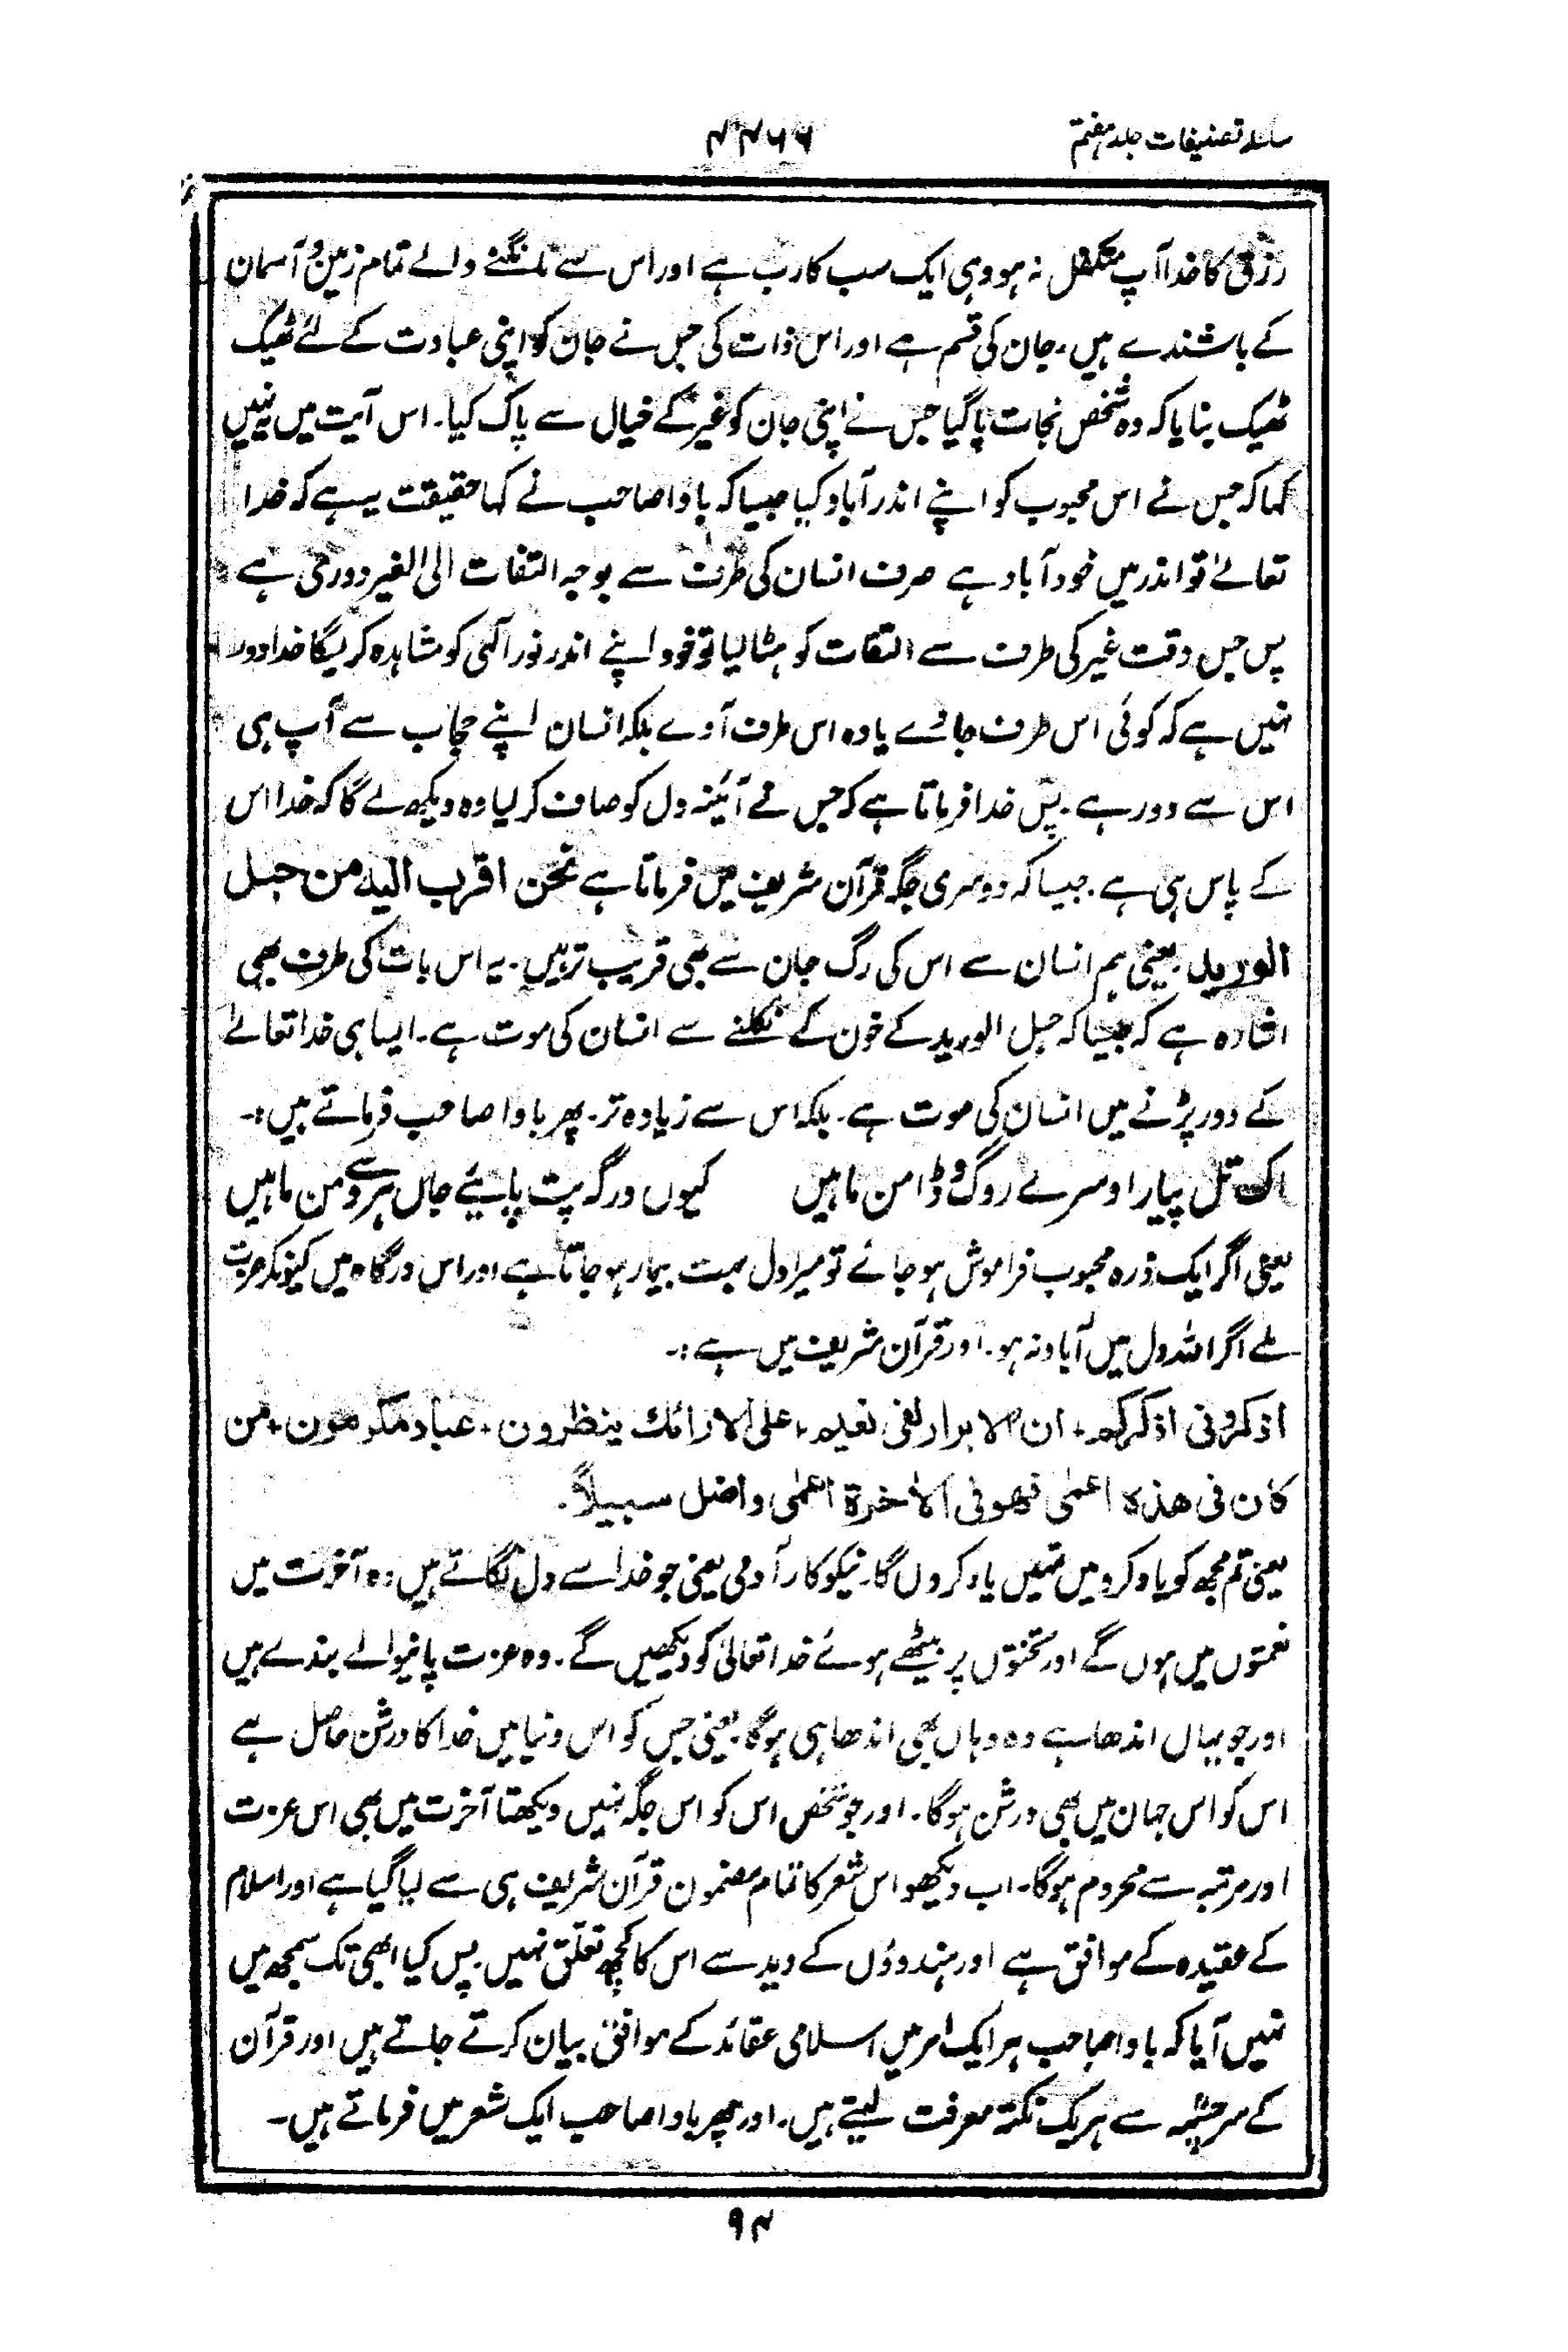 سلسلہ تصنیفات جلد ہفتم
رزق کا خدا آپ متکفل نہ ہو وہی ایک سب کا رب ہے اور اس سے مانگنے والے تمام زمین و آسمان
کے باشندے ہیں۔ جان کی قسم ہے اور اس ذات کی جس نے جان کو اپنی عبادت کے لئے ٹھیک
ٹھیک بنایا کہ وہ شخص نجات پا گیا جس نے اپنی جان کو غیر کے خیال سے پاک کیا۔ اس آیت میں یہ نہیں
کہا کہ جس نے اس محبوب کو اپنے اندر آباد کیا جیسا کہ باوا صاحب نے کہا حقیقت یہ ہے کہ خدا
تعالےٰ تو اندر میں خود آباد ہے صرف انسان کی طرف سے بوجہ التفات الی الغیر دوری ہے
پس جس وقت غیر کی طرف سے التفات کو ہٹا لیا تو خود اپنے اندر نور الٰہی کو مشاہدہ کر لیگا خدا دور
نہیں ہے کہ کوئی اس طرف جائے یا وہ اس طرف آوے بلکہ انسان اپنے حجاب سے آپ ہی
اس سے دور ہے۔ پس خدا فرماتا ہے کہ جس نے آئینہ دل کو صاف کر لیا وہ دیکھ لے گا کہ خدا اس
کے پاس ہی ہے۔ جیسا کہ دوسری جگہ قرآن شریف میں فرماتا ہے نحن اقرب الیه من حبل
الورید۔ یعنی ہم انسان سے اس کی رگ جان سے بھی قریب تر ہیں۔ یہ اس بات کی طرف بھی
اشارہ ہے کہ جیسا کہ حبل الورید کے خون کے نکلنے سے انسان کی موت ہے۔ ایسا ہی خدا تعالےٰ
کے دور پڑنے میں انسان کی موت ہے۔ بلکہ اس سے زیادہ تر۔ پھر باوا صاحب فرماتے ہیں:۔
اک تل پیارا وسرے روگ وڈا من ماہیں کیوں درگہ پت پایئے جاں ہر وسے من ماہیں
یعنی اگر ایک ذرہ محبوب فراموش ہو جائے تو میرا دل بہت بیمار ہو جاتا ہے اور اس درگاہ میں کیونکر عزت
ملے اگر اللہ دل میں آباد نہ ہو۔ اور قرآن شریف میں ہے:۔
اذکرونی اذکرکم۔ ان الابرار لفی نعیم۔ علی الارائك ینظرون۔ عباد مکرمون۔ من
کان فی هذہ اعمٰی فهو فی الاٰخرة اعمٰی واضل سبیلاً۔
یعنی تم مجھ کو یاد کرو میں تمہیں یاد کروں گا۔ نیکو کار آدمی یعنی جو خدا سے دل لگاتے ہیں وہ آخرت میں
نعمتوں میں ہوں گے اور تختوں پر بیٹھے ہوئے خدا تعالیٰ کو دیکھیں گے۔ وہ عزت پانیوالے بندے ہیں
اور جو یہاں اندھا ہے وہ وہاں بھی اندھا ہی ہوگا۔ یعنی جس کو اس دنیا میں خدا کا درشن حاصل ہے
اس کو اس جہان میں بھی درشن ہوگا۔ اور جو شخص اس کو اس جگہ نہیں دیکھتا آخرت میں بھی اس عزت
اور مرتبہ سے محروم ہوگا۔ اب دیکھو اس شعر کا تمام مضمون قرآن شریف ہی سے لیا گیا ہے اور اسلام
کے عقیدہ کے موافق ہے اور ہندوؤں کے وید سے اس کا کچھ تعلق نہیں۔ پس کیا ابھی تک سمجھ میں
نہیں آیا کہ باوا صاحب ہر ایک امر میں اسلامی عقائد کے موافق بیان کرتے جاتے ہیں اور قرآن
کے سرچشمہ سے ہریک نکتہ معرفت لیتے ہیں۔ اور پھر باوا صاحب ایک شعر میں فرماتے ہیں۔
۹۴